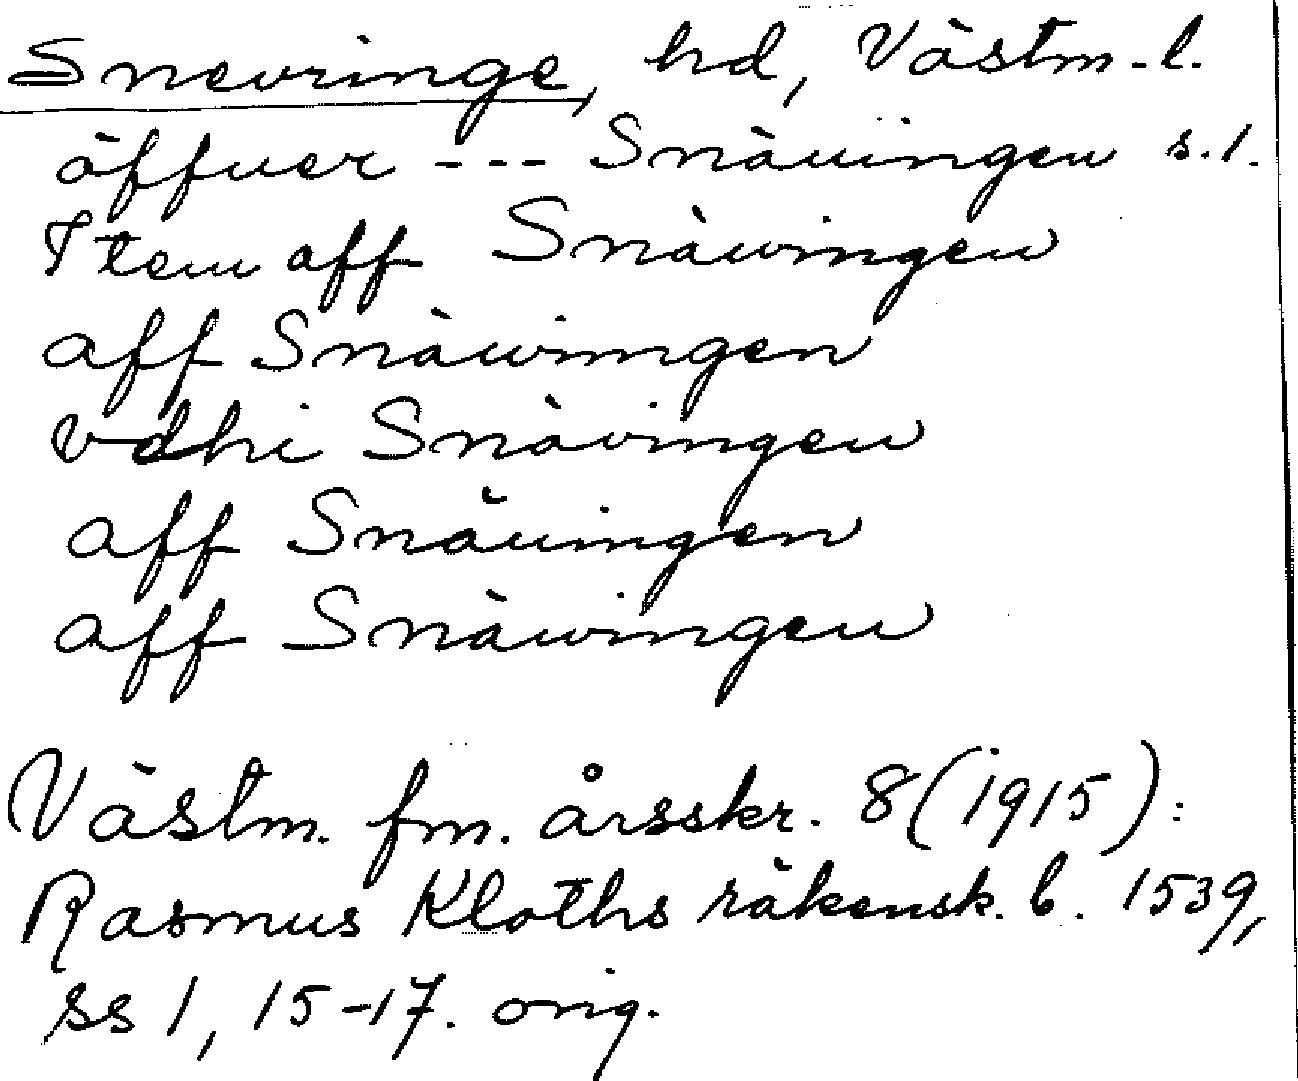 Snevringe, hd, Västm.l.
öffuer --- Snäuingen s.1.
Item aff Snäwingen
aff Snäwingen
vdhi Snävingen
aff Snäuingen
aff Snäwingen
Västm. fm. årsskr. 8 (1915):
Rasmus Kloths räkensk. b. 1539,
ss 1, 15-17. orig.